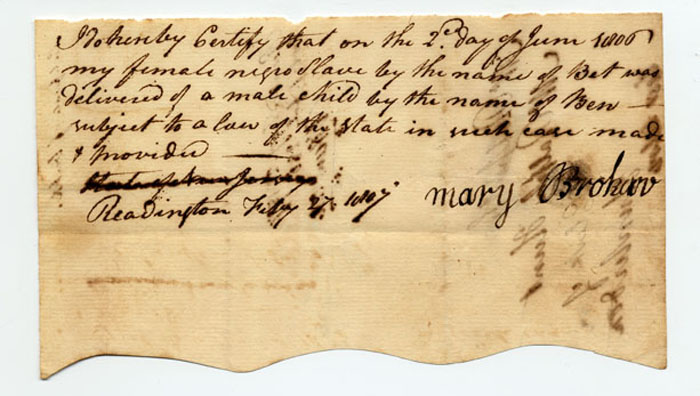 I do hereby Certify that on the 2d. day of June 1806
my female negro Slave by the name of Bet was
delivered of a male child by the name of Ben —
subject to a law of the State in such case made
& provided —
State of New Jersey
Readington Feby 27 1807
mary Brokaw